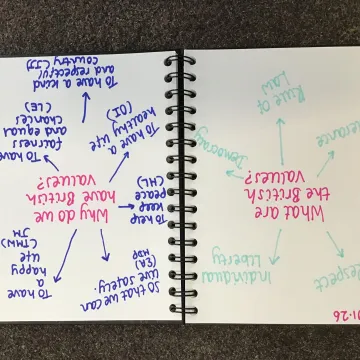 01.26
Respect
Individual
liberty
What are
the British
values?
Democracy
Rule of
Law
So that we can
live safely.
To have
a
happy
life
JM
To help
keep
peace
(HL)
Why do we
have the British
values?
To have
fairness
and equal
chances
(LE)
To have a
healthy life
(OI)
To have a kind
and respectful
country